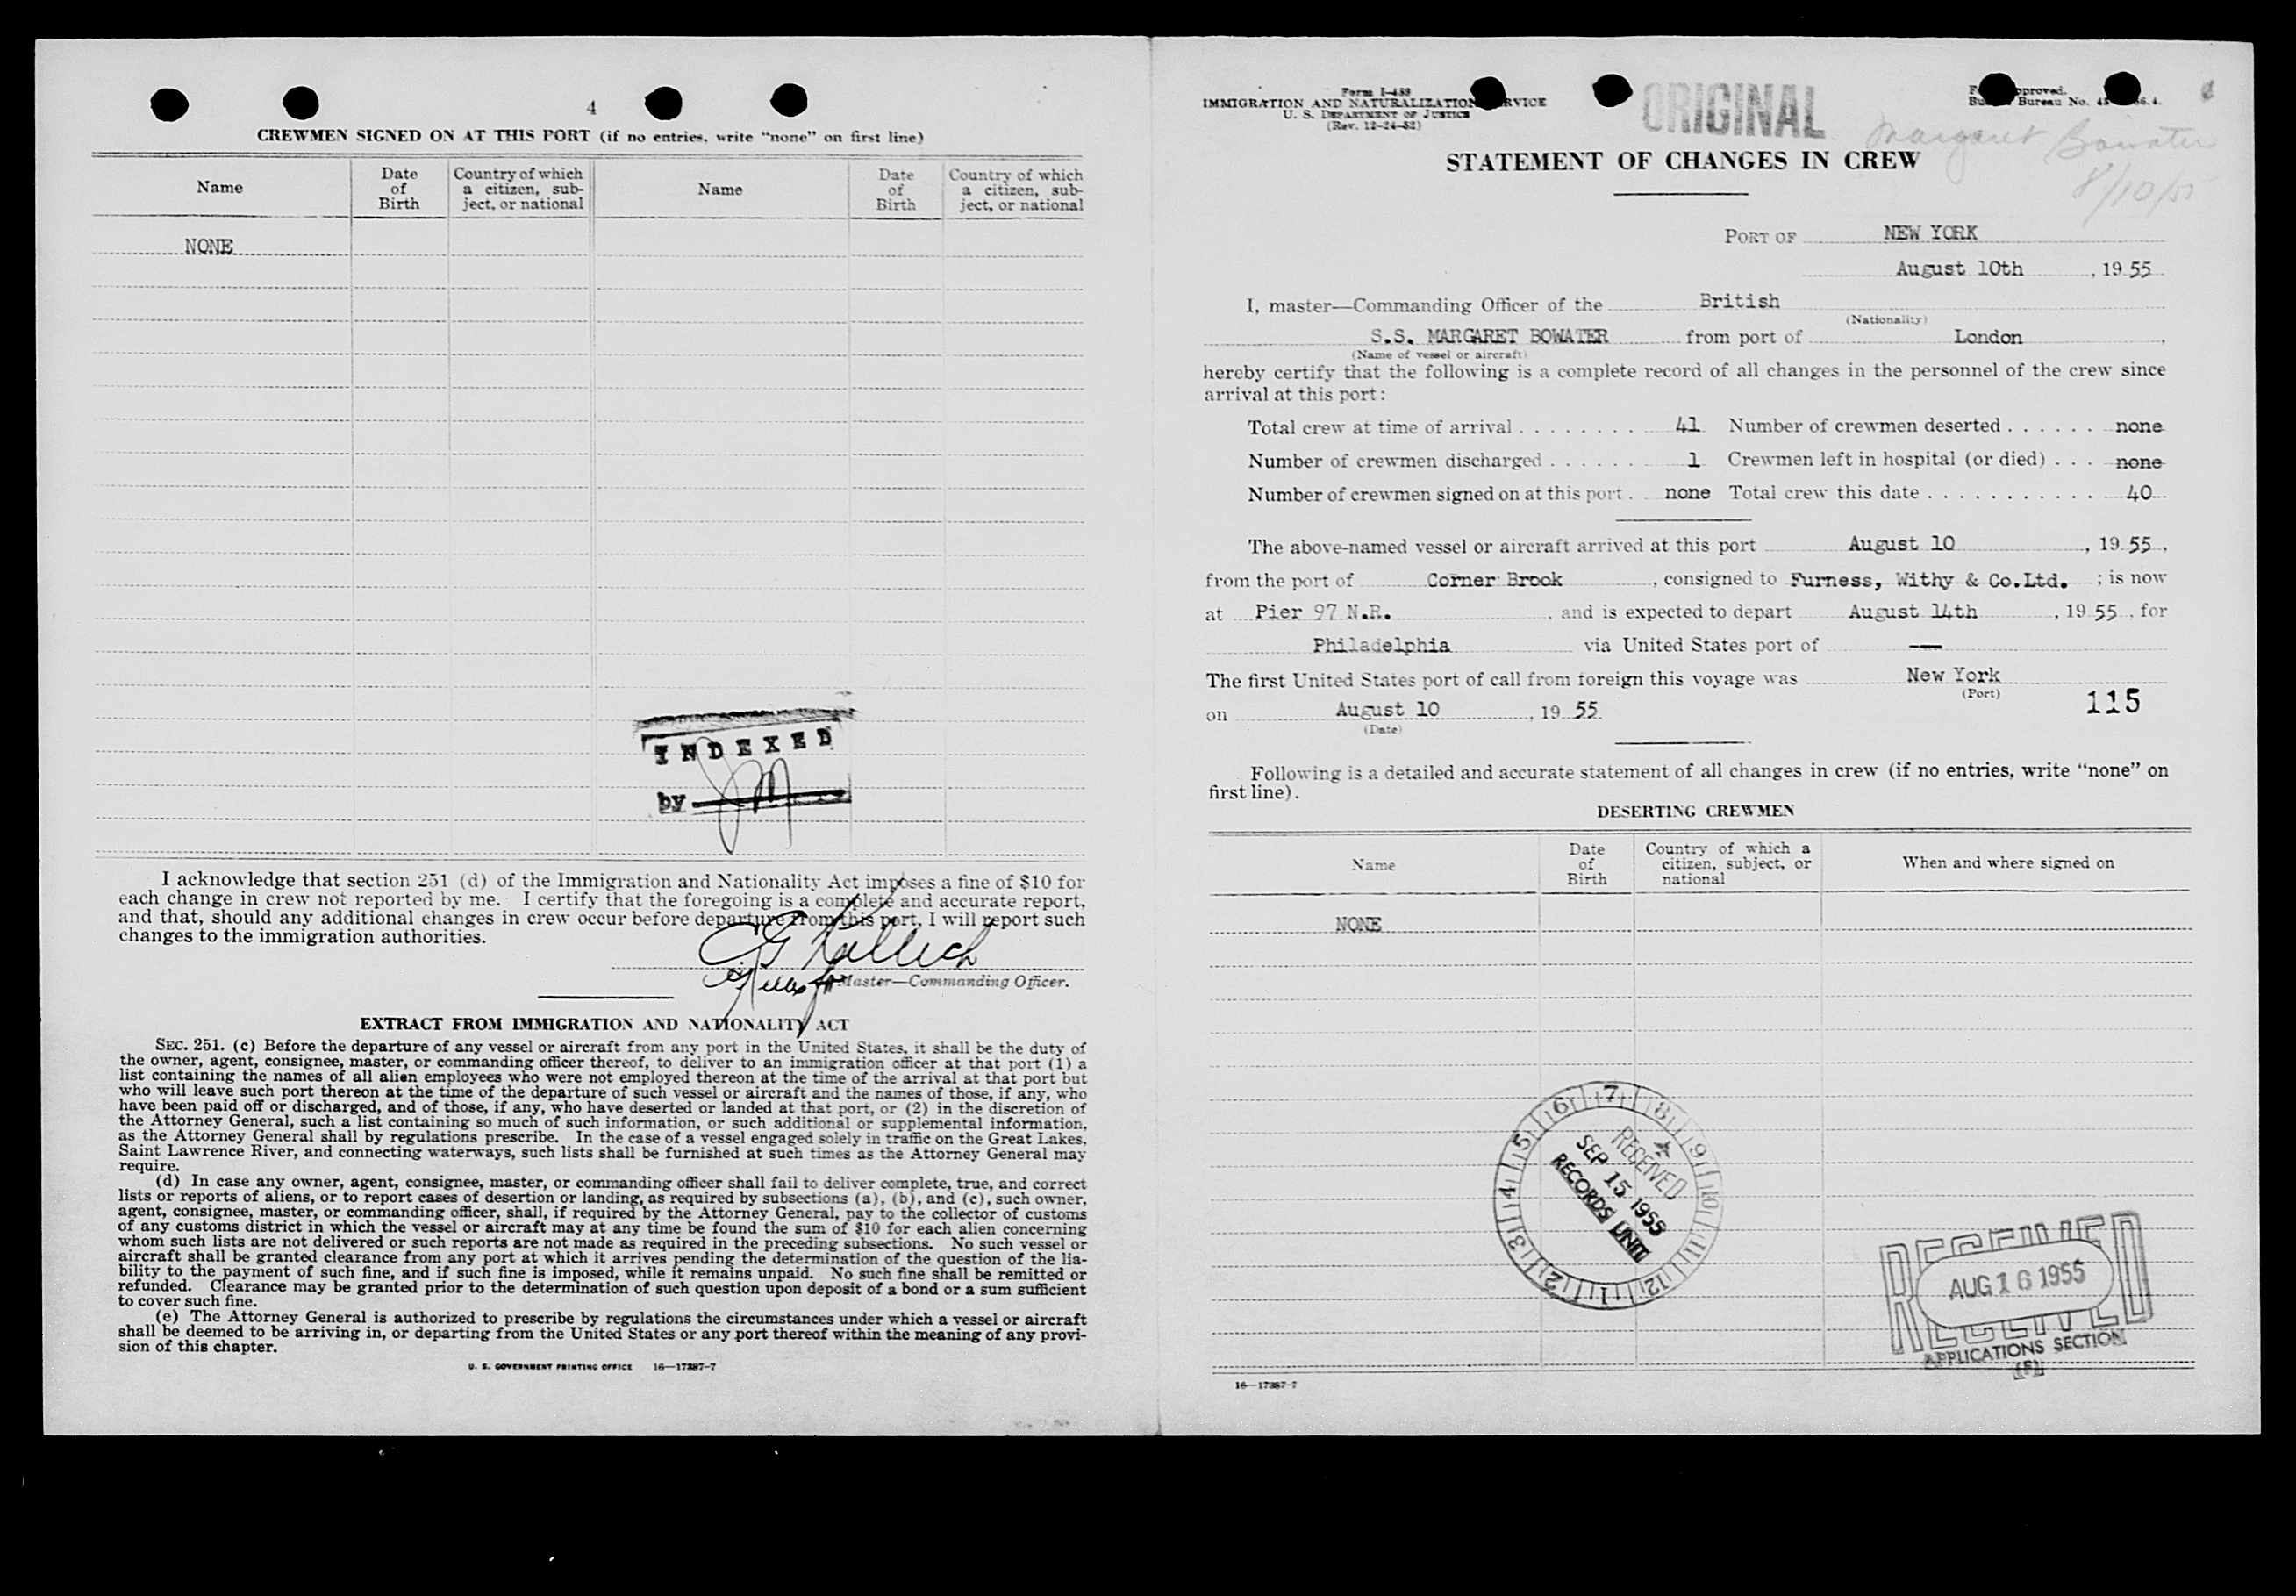 4
CREWMEN SIGNED ON AT THIS PORT (if no entries, write "none" on first line)
Name
Date of Birth
Country of which a citizen, subject, or national
Name
Date of Birth
Country of which a citizen, subject, or national
NONE
INDEXED
by
I acknowledge that section 251 (d) of the Immigration and Nationality Act imposes a fine of $10 for
each change in crew not reported by me. I certify that the foregoing is a complete and accurate report,
and that, should any additional changes in crew occur before departure from this port, I will report such
changes to the immigration authorities.
Master—Commanding Officer.
EXTRACT FROM IMMIGRATION AND NATIONALITY ACT
SEC. 251. (c) Before the departure of any vessel or aircraft from any port in the United States, it shall be the duty of
the owner, agent, consignee, master, or commanding officer thereof, to deliver to an immigration officer at that port (1) a
list containing the names of all alien employees who were not employed thereon at the time of the arrival at that port but
who will leave such port thereon at the time of the departure of such vessel or aircraft and the names of those, if any, who
have been paid off or discharged, and of those, if any, who have deserted or landed at that port, or (2) in the discretion of
the Attorney General, such a list containing so much of such information, or such additional or supplemental information,
as the Attorney General shall by regulations prescribe. In the case of a vessel engaged solely in traffic on the Great Lakes,
Saint Lawrence River, and connecting waterways, such lists shall be furnished at such times as the Attorney General may
require.
(d) In case any owner, agent, consignee, master, or commanding officer shall fail to deliver complete, true, and correct
lists or reports of aliens, or to report cases of desertion or landing, as required by subsections (a), (b), and (c), such owner,
agent, consignee, master, or commanding officer, shall, if required by the Attorney General, pay to the collector of customs
of any customs district in which the vessel or aircraft may at any time be found the sum of $10 for each alien concerning
whom such lists are not delivered or such reports are not made as required in the preceding subsections. No such vessel or
aircraft shall be granted clearance from any port at which it arrives pending the determination of the question of the lia-
bility to the payment of such fine, and if such fine is imposed, while it remains unpaid. No such fine shall be remitted or
refunded. Clearance may be granted prior to the determination of such question upon deposit of a bond or a sum sufficient
to cover such fine.
(e) The Attorney General is authorized to prescribe by regulations the circumstances under which a vessel or aircraft
shall be deemed to be arriving in, or departing from the United States or any port thereof within the meaning of any provi-
sion of this chapter.
U. S. GOVERNMENT PRINTING OFFICE 16—17387-7
Form I-489
IMMIGRATION AND NATURALIZATION SERVICE
U. S. DEPARTMENT OF JUSTICE
(Rev. 12-24-52)
ORIGINAL
Bureau No.
Margaret Bowater
8/10/55
STATEMENT OF CHANGES IN CREW
PORT OF NEW YORK
August 10th, 19 55
I, master—Commanding Officer of the British
(Nationality)
S.S. MARGARET BOWATER from port of London,
(Name of vessel or aircraft)
hereby certify that the following is a complete record of all changes in the personnel of the crew since
arrival at this port:
Total crew at time of arrival . . . . . . . . . 41 Number of crewmen deserted . . . . . . none
Number of crewmen discharged . . . . . . . 1 Crewmen left in hospital (or died) . . . none
Number of crewmen signed on at this port . none Total crew this date . . . . . . . . . . . 40
The above-named vessel or aircraft arrived at this port August 10, 19 55,
from the port of Corner Brook, consigned to Furness, Withy & Co.Ltd. ; is now
at Pier 97 N.R., and is expected to depart August 14th, 19 55, for
Philadelphia via United States port of —
The first United States port of call from foreign this voyage was New York
(Port)
115
on August 10, 19 55
(Date)
Following is a detailed and accurate statement of all changes in crew (if no entries, write "none" on
first line).
DESERTING CREWMEN
Name
Date of Birth
Country of which a citizen, subject, or national
When and where signed on
NONE
1 2 3 4 5 6 7 8 9 10 11 12
RECEIVED
SEP 15 1955
RECORDS UNIT
RECEIVED
AUG 16 1955
RECEIVED
APPLICATIONS SECTION
16—17387-7